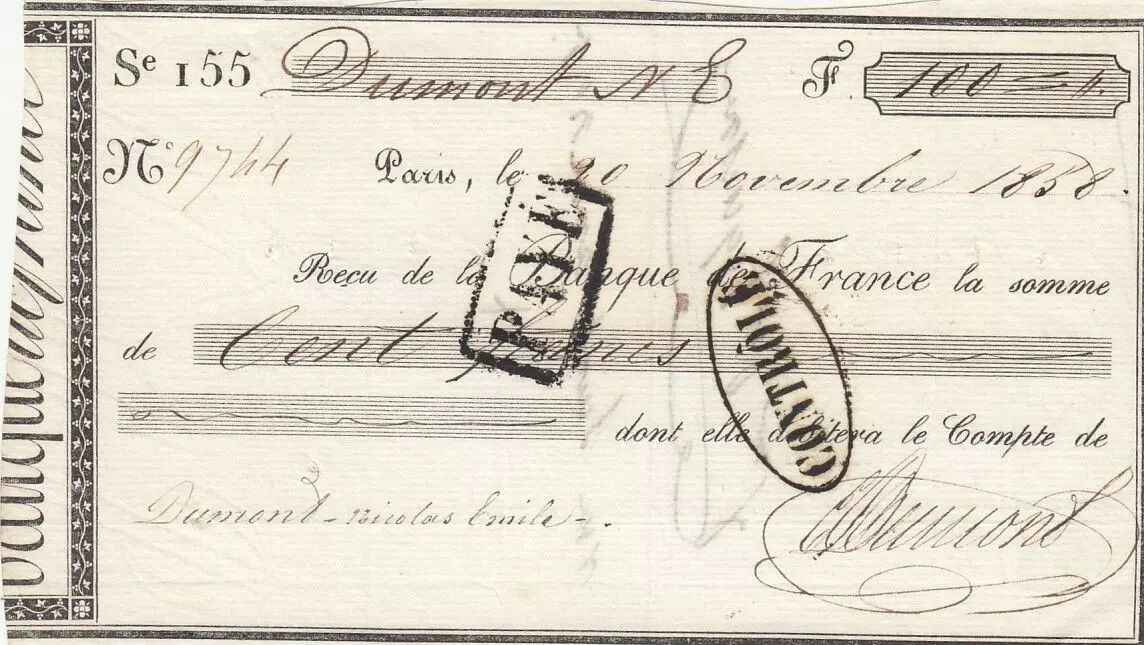 Sᵉ 155 Dumont N E F. 100 =
Nº 9744 Paris, le 20 Novembre 1858.
Reçu de la Banque de France la somme
de Cent francs
dont elle débitera le Compte de
Dumont - Nicolas Emile -.
Dumont
PAYÉ
CONTRÔLE